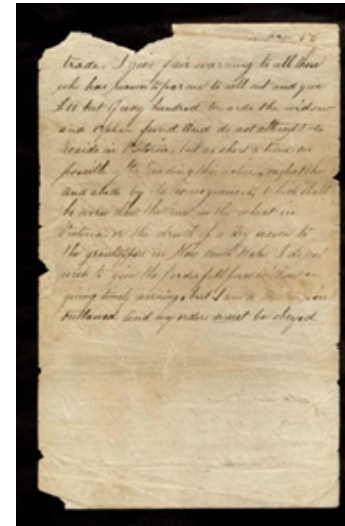 page 56
trade. I give fair warning to all those
who has reason to fear me to sell out and give
£10 out of every hundred towards the widow
and orphan fund and do not attempt to
reside in Victoria but as short a time as
possible after reading this notice, neglect this
and abide by the consequences, which shall
be worse than the rust in the wheat in
Victoria or the druth of a dry season to
the grasshoppers in New South Wales I do not
wish to give the order full force without
giving timely warning, but I am a son
outlawed and my orders must be obeyed